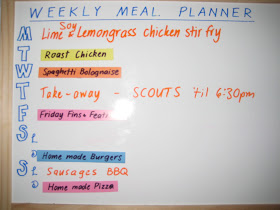 WEEKLY MEAL PLANNER
M Lime Soy & Lemongrass chicken stir fry
T Roast Chicken
W Spaghetti Bolognaise
T Take-away - SCOUTS 'til 6:30pm
F Friday Fins + Feat
S L
D Home made Burgers
S L Sausages BBQ
D Home made Pizza